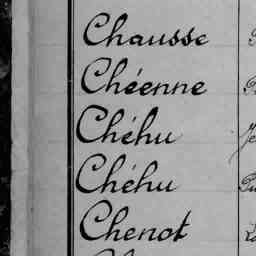 Chausse
Chéenne
Chéhu
Chéhu
Chenot